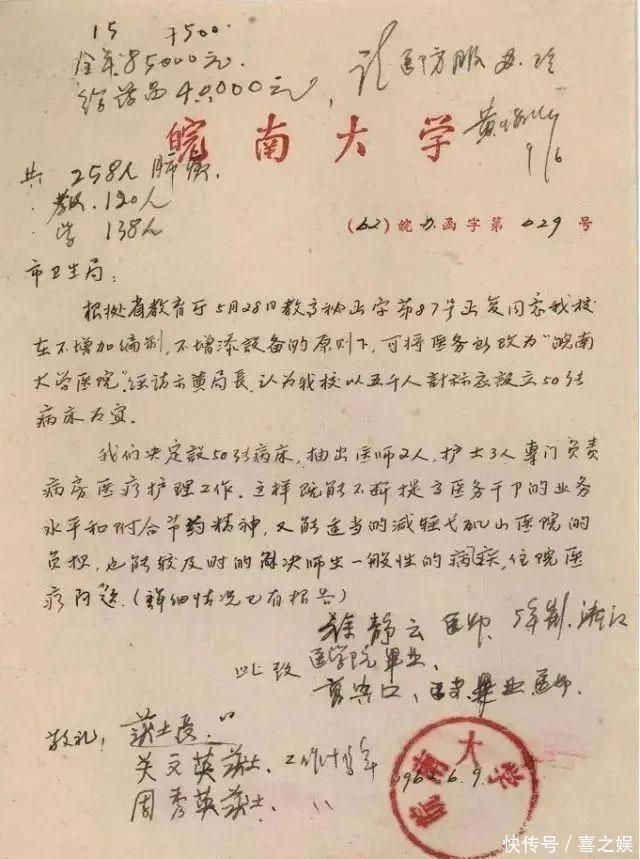 15 +500
全年85000元.
给药品40000元,
请医防服务
皖南大学
9/6
共 258人肺病.
教.120人
学 138人
(62)皖办函字第029号
市卫生局:
根据省教育厅5月28日教高秘函字第87号函复同意我校
在不增加编制,不增添設备的原则下,可将医务所改为“皖南
大学医院”,经請示黄局長,认为我校以五千人計标准設立50张
病床为宜.
我们决定設50张病床,抽出医师2人,护士3人專门负责
病房医疗护理工作.这样既能不断提高医务干卩的业务
水平和附合节約精神,又能适当的減轻弋矶山医院的
负担,也能较及时的解决师生一般性的病疾,住院医
疗问题.(詳细情况已有报告)
徐静云医师.5年制.浙江
此致 医学院畢业.
畢业医师.
敬礼! 护士長:
吴文英护士.工作十年
周秀英护士.
1962.6.9.
皖南大学
快传号/喜之娱